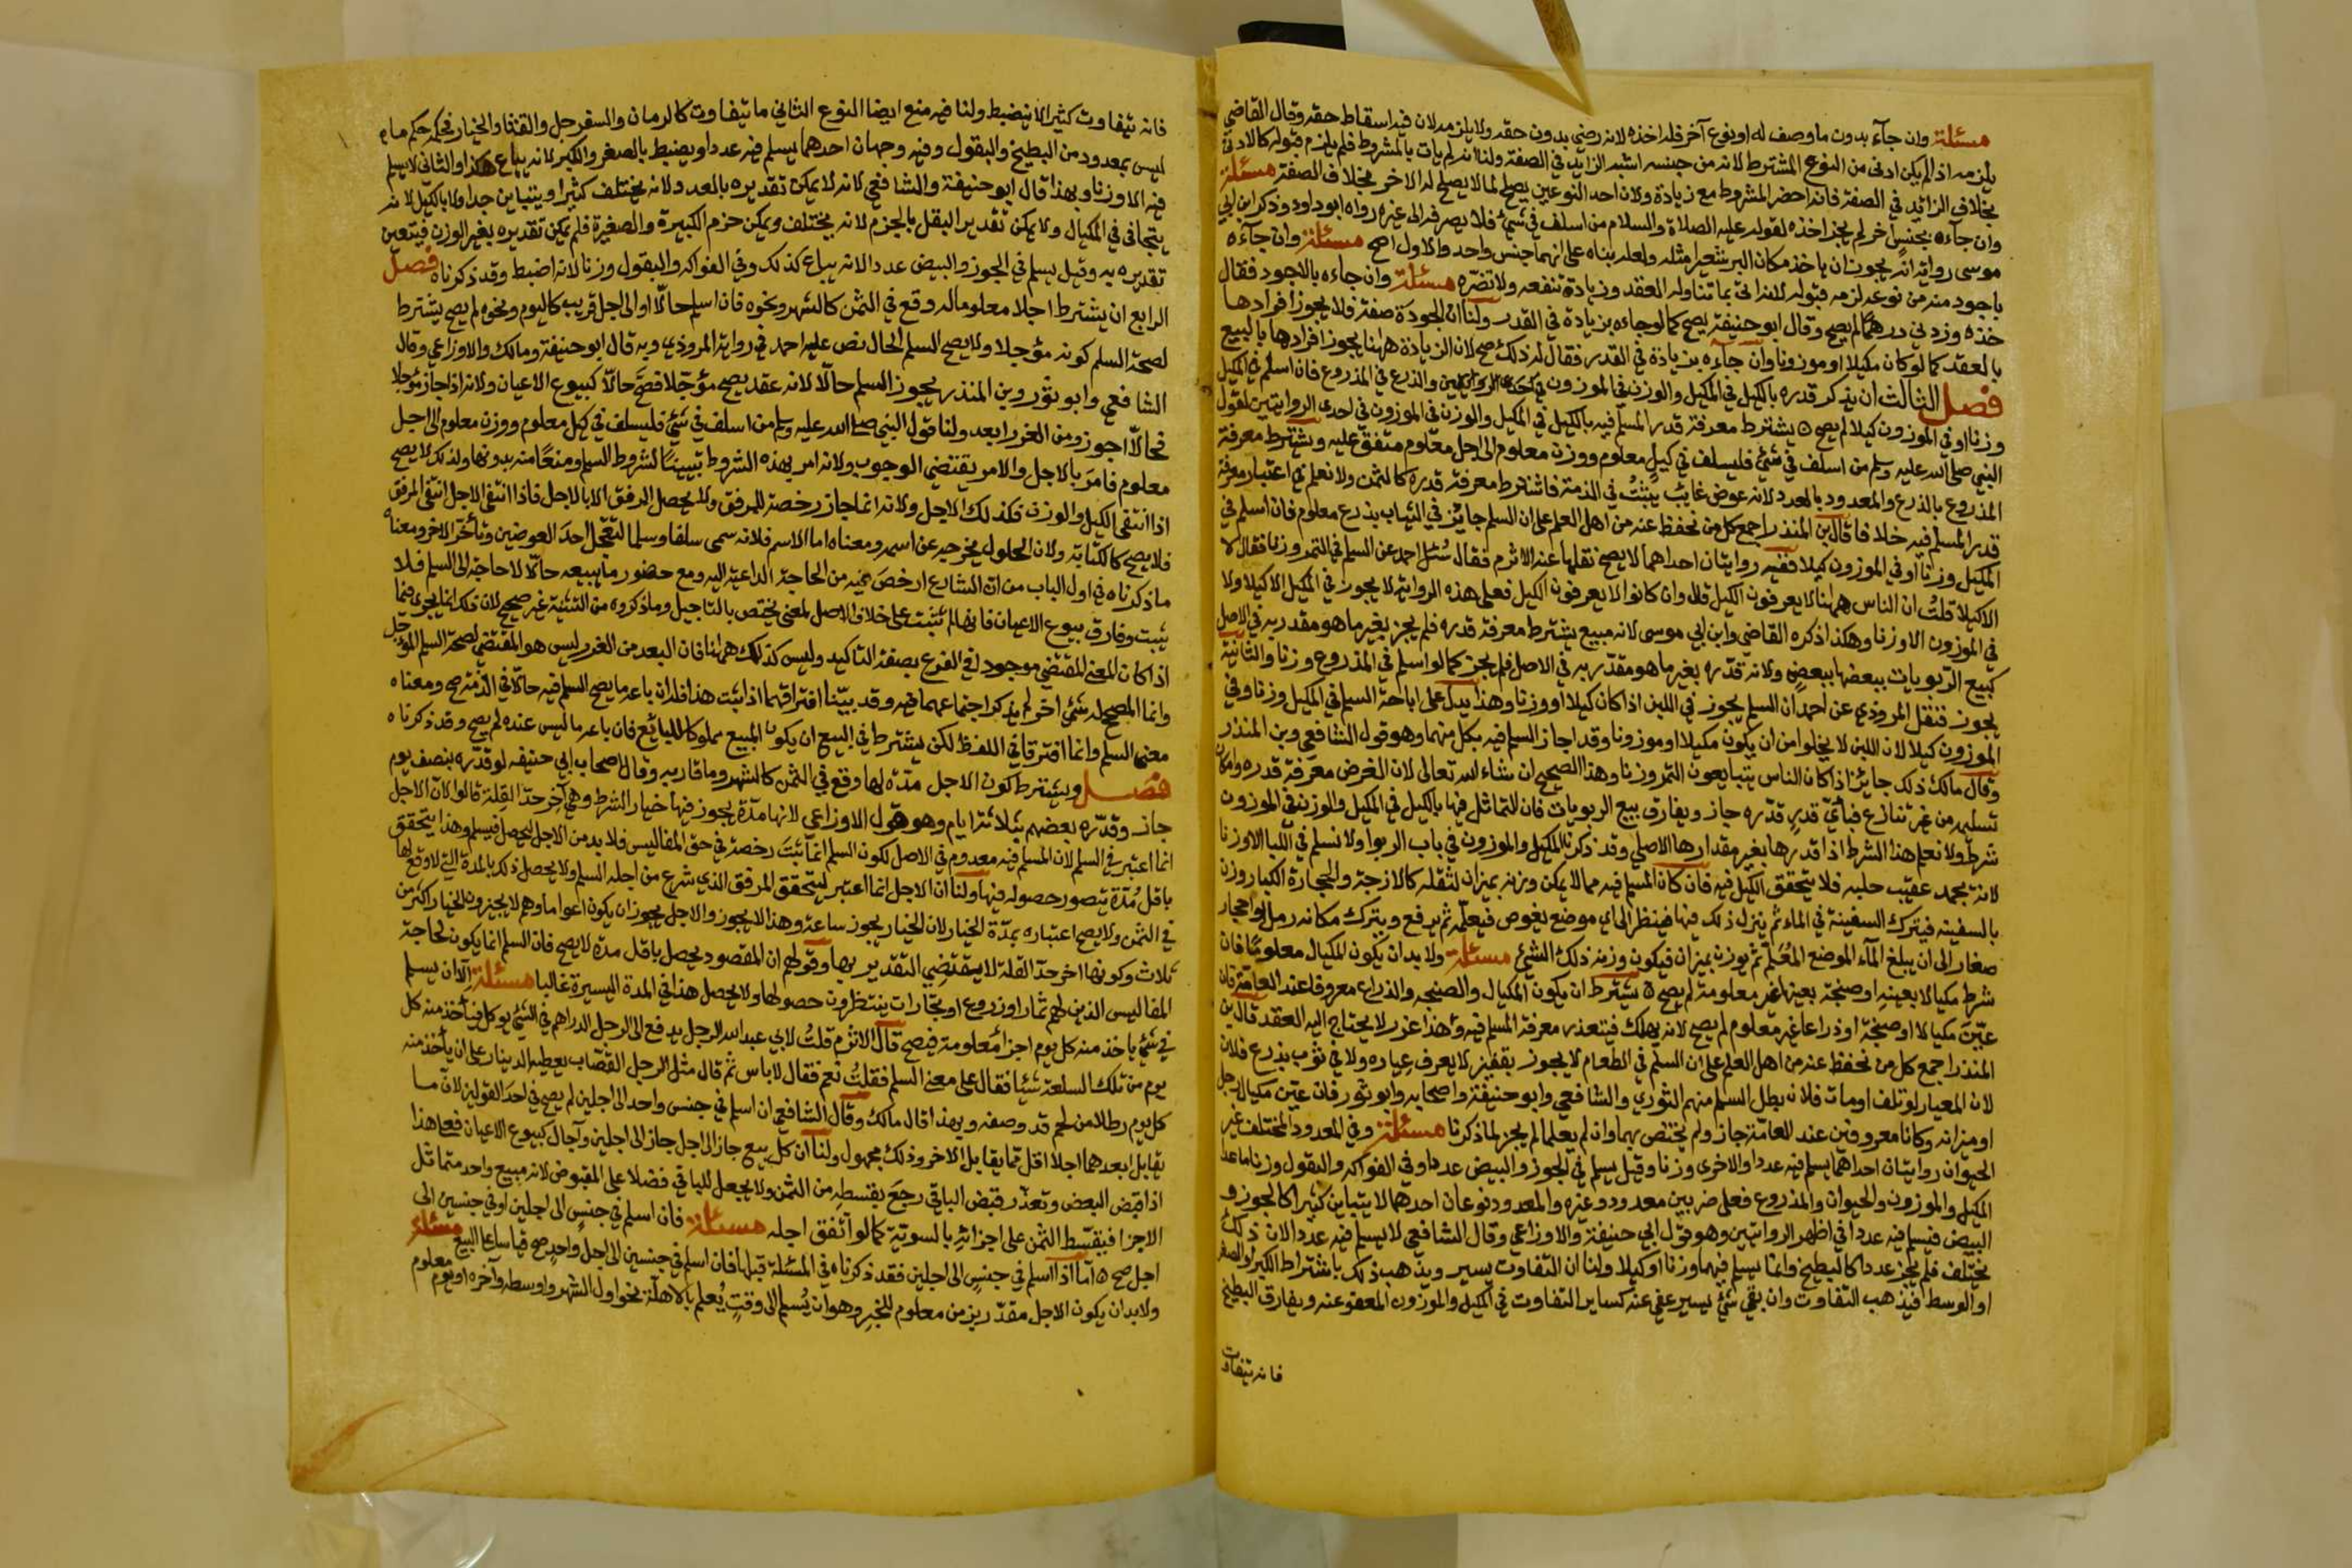 مسئلة وان جآء بدون ما وصف له او نوع آخر فله اخذه لانه رضي بدون حقه ولا يلزمه لان فيه اسقاط حقه وقال القاضي
يلزمه اذا لم يكن ادنى من النوع المشترط لانه من جنسه اشبه الزايد في الصفة ولنا انه لم يات بالمشروط فلم يلزم قبوله كالادنى
بخلاف الزائد في الصفة فانه احضر المشروط مع زيادة ولان احد النوعين يصلح لما لا يصلح له الاخر بخلاف الصفة مسئلة
وان جآءه بجنس آخر لم يجز اخذه لقوله عليه الصلاة والسلام من اسلف في شئ فلا يصرفه الى غيره رواه ابو داود وذكر ابن ابي
موسى رواية انه يجوز ان ياخذ مكان البر شعيرا مثله ولعله بناه على انهما جنس واحد والاول اصح مسئلة وان جآءه
باجود منه من نوعه لزمه قبوله لانه اتى بما تناوله العقد وزيادة تنفعه ولا تضره مسئلة وان جاءه بالاجود فقال
خذه وزدني درهمًا لم يصح وقال ابو حنيفة يصح كما لو جاءه بزيادة في القدر ولنا ان الجودة صفة فلا يجوز افرادها
بالعقد كما لو كان مكيلا او موزونا وان جآءه بزيادة في القدر فقال له ذلك صح لان الزيادة ههنا يجوز افرادها بالبيع
فصل الثالث ان يذكر قدره بالكيل في المكيل والوزن في الموزون في احدى الروايتين والذرع في المذروع فان اسلم في المكيل
وزنا او في الموزون كيلا لم يصح ه يشترط معرفة قدر المسلم فيه بالكيل في المكيل والوزن في الموزون في احدى الروايتين لقول
النبي صلى الله عليه وسلم من اسلف في شئ فليسلف في كيل معلوم ووزن معلوم الى اجل معلوم متفق عليه ويشترط معرفة
المذروع بالذرع والمعدود بالعدد لانه عوض غايب يثبت في الذمة فاشترط معرفة قدره كالثمن ولا نعلم في اعتبار معرفة
قدر المسلم فيه خلافا قال ابن المنذر اجمع كل من نحفظ عنه من اهل العلم على ان السلم جايز في الثياب بذرع معلوم فان اسلم في
المكيل وزنا او في الموزون كيلا ففيه روايتان احداهما لا يصح نقلها عنه الاثرم فقال سُئل احمد عن السلم في التمر وزنا فقال لا
الا كيلا قلتُ ان الناس ههنا لا يعرفون الكيل قال وان كانوا لا يعرفون الكيل فعلى هذه الرواية لا يجوز في المكيل الا كيلا ولا
في الموزون الا وزنا وهكذا ذكره القاضي وابن ابي موسى لانه مبيع يشترط معرفة قدره فلم يجز بغير ما هو مقدر به في الاصل
كبيع الربويات بعضها ببعض ولانه قدّره بغير ما هو مقدّر به في الاصل فلم يجز كما لو اسلم في المذروع وزنا والثانية
يجوز فنقل المروذي عن احمد ان السلم يجوز في اللبن اذا كان كيلا او وزنا وهذا يدل على اباحة السلم في المكيل وزنا وفي
الموزون كيلا لان اللبن لا يخلوا من ان يكون مكيلا او موزونا وقد اجاز السلم فيه بكل منهما وهو قول الشافعي وبن المنذر
وقال مالك ذلك جايز اذا كان الناس يتبايعون التمر وزنا وهذا الصحيح ان شاء الله تعالى لان الغرض معرفة قدره وامكان
تسليمه من غير تنازع فباي قدر قدّره جاز ويفارق بيع الربويات فان التماثل فيها بالكيل في المكيل والوزن في الموزون
شرط ولا نعلم هذا الشرط اذا قدرها بغير مقدارها الاصلي وقد ذكرنا المكيل والموزون في باب الربوا ولا نسلم في اللبا الا وزنا
لانه يجمد عقيب حلبه فلا يتحقق الكيل فيه فان كان المسلم فيه مما لا يمكن وزنه بميزان لثقله كالارحية والحجارة الكبار وزن
بالسفينة فيترك السفينة في الماء ثم ينزل ذلك فيها فينظر الى اي موضع يغوص فيعلّمه ثم يرفع ويترك مكانه رمل او احجار
صغار الى ان يبلغ المآء الموضع المُعَلم ثم يوزن بميزان فيكون وزنه ذلك الشئ مسئلة ولا بد ان يكون المكيال معلومًا فان
شرط مكيالا بعينه او صنجة بعينها غير معلومة لم يصح ه يشترط ان يكون المكيال والصنجة والذراع معروفا عند العامة فان
عيّن مكيالا او صنجة او ذراعا غير معلوم لم يصح لانه يهلك فيتعذر معرفة المسلم فيه وهذا غرر لا يحتاج اليه العقد قال ابن
المنذر اجمع كل من نحفظ عنه من اهل العلم على ان السلم في الطعام لا يجوز بقفيز لا يعرف عياره ولا في ثوب بذرع فلان
لان المعيار لو تلف او مات فلان بطل السلم منهم الثوري والشافعي وابو حنيفة واصحابه وابو ثور فان عيّن مكيال رجل
او ميزانه وكانا معروفين عند العامة جاز ولم يختص بهما وان لم يعلما لم يجز لما ذكرنا مسئلة وفي المعدود المختلف غير
الحيوان روايتان احداهما يسلم فيه عددا والاخرى وزنا وقيل يسلم في الجوز والبيض عددا وفي الفواكه والبقول وزنا ما عدا
المكيل والموزون والحيوان والمذروع فعلى ضربين معدود وغيره والمعدود نوعان احدهما لا يتباين كثيرا كالجوز و
البيض فيسلم فيه عددا في اظهر الروايتين وهو قول ابي حنيفة والاوزاعي وقال الشافعي لا يسلم فيه عددا لان ذلك
يختلف فلم يجز عددا كالبطيخ وانما يسلم فيهما وزنا او كيلا ولنا ان التفاوت يسير ويذهب ذلك باشتراط الكبر او الصغر
او الوسط فيذهب التفاوت وان بقي شئ يسير عفي عنه كساير التفاوت في المكيل والموزون المعفو عنه ويفارق البطيخ
فانه يتفاوت
فانه يتفاوت كثيرا لا ينضبط ولنا فيه منع ايضا النوع الثاني ما يتفاوت كالرمان والسفرجل والقثا والخيار فحكمه حكم ما
ليس بمعدود من البطيخ والبقول وفيه وجهان احدهما يسلم فيه عددا ويضبط بالصغر والكبر لانه يباع هكذا والثاني لا يسلم
فيه الا وزنا وبهذا قال ابو حنيفة والشافعي لانه لا يمكن تقديره بالعدد لانه يختلف كثيرا ويتباين جدا ولا بالكيل لانه
يتجافى في المكيال ولا يمكن تقدير البقل بالحزم لانه يختلف ويمكن حزم الكبيرة والصغيرة فلم يمكن تقديره بغير الوزن فيتعين
تقديره به وقيل يسلم في الجوز والبيض عددا لانه يباع كذلك وفي الفواكه والبقول وزنا لانه اضبط وقد ذكرناه فصل
الرابع ان يشترط اجلا معلوما له وقع في الثمن كالشهر ونحوه فان اسلم حالّا او الى اجل قريب كاليوم ونحوه لم يصح يشترط
لصحة السلم كونه مؤجلا ولا يصح السلم الحال نص عليه احمد في رواية المروذي وبه قال ابو حنيفة ومالك والاوزاعي وقال
الشافعي وابو ثور وبن المنذر يجوز السلم حالّا لانه عقد يصح مؤجّلا فصحّ حالّا كبيوع الاعيان ولانه اذا جاز مؤجلا
فحالّا اجوز ومن الغرر ابعد ولنا قول النبي صلى الله عليه وسلم من اسلف في شئ فليسلف في كيل معلوم ووزن معلوم الى اجل
معلوم فامَرَ بالاجل والامر يقتضي الوجوب ولانه امر بهذه الشروط تبيينًا لشروط السلم ومنعًا منه بدونها ولذلك لا يصح
اذا انتفى الكيل والوزن فكذلك الاجل ولانه انما جاز رخصة للمرفق ولا يحصل المرفق الا بالاجل فاذا انتفى الاجل انتفى المرفق
فلا يصح كالكتابة ولان الحلول يخرجه عن اسمه ومعناه اما الاسم فلانه سمى سلفا وسلما لتعجّل احدَ العوضين وتأخّر الاخر ومعناه
ما ذكرناه في اول الباب من ان الشارع ارخصَ فيه من الحاجة الداعية اليه ومع حضور ما يبيعه حالّا لا حاجة الى السلم فلا
يثبت وفارق بيوع الاعيان فانها لم تثبت على خلاف الاصل لمعنى يختص بالتاجيل وما ذكروه من التنبيه غير صحيح لان ذلك انما يجرى فيما
اذا كان المعنى المقتضي موجود في الفرع بصفة التاكيد وليس كذلك ههنا فان البعد من الغرر ليس هو المقتضي لصحة السلم المؤجل
وانما المصحح له شئ اخر لم يذكر اجتماعهما فيه وقد بيّنا افتراقهما اذا ثبت هذا فانه ان باعه ما يصح السلم فيه حالّا في الذمة صح ومعناه
معنى السلم وانما افترقا في اللفظ لكن يشترط في البيع ان يكون المبيع مملوكا للبائع فان باعه ما ليس عنده لم يصح وقد ذكرناه
فصل ويشترط كون الاجل مدّة لها وقع في الثمن كالشهر وما قاربه وقال اصحاب ابي حنيفه لو قدّره بنصف يوم
جاز وقدّره بعضهم بثلاثة ايام وهو قول الاوزاعي لانها مدّة يجوز فيها خيار الشرط وهي آخر حدّ القلة قالوا لان الاجل
انما اعتبر في السلم لان المسلم فيه معدوم في الاصل لكون السلم انما ثبَتَ رخصة في حق المفاليس فلا بد من الاجل ليحصل فيسلم وهذا يتحقق
باقل مُدّة يتصور حصوله فيها ولنا ان الاجل انما اعتبر ليتحقق المرفق الذي شرع من اجله السلم ولا يحصل ذلك بالمدة التي لا وقع لها
في الثمن ولا يصح اعتباره بمدّة الخيار لان الخيار يجوز ساعة وهذا لا يجوز والاجل يجوز ان يكون اعواما وهم لا يجيزون الخيار اكثر من
ثلاث وكونها اخر حدّ القلة لا يقتضي التقدير بها وقولهم ان المقصود يحصل باقل مدّة لا يصح فان السلم انما يكون لحاجة
المفاليس الذين لهم ثمار او زروع او تجارات ينتظرون حصولها ولا يحصل هذا في المدة اليسيرة غالبا مسئلة الّا ان يسلم
في شئ ياخذ منه كل يوم اجزا معلومة فيصح قال الاثرم قلتُ لابي عبد الله الرجل يدفع الى الرجل الدراهم في الشئ يوكل فياخذ منه كل
يوم من تلك السلعة شيئا فقال على معنى السلم فقلتُ نعم فقال لا باس ثم قال مثل الرجل القصّاب يعطيه الدينار على ان ياخذ منه
كل يوم رطلا من لحم قد وصفه وبهذا قال مالك وقال الشافعي ان اسلم في جنس واحد الى اجلين لم يصح في احد القولين لانّ ما
يقابل ابعدهما اجلا اقل مما يقابل الاخر وذلك مجهول ولنا ان كل بيع جاز الى اجل جاز الى اجلين وآجال كبيوع الاعيان فعلى هذا
اذا قبض البعض وتعذّر قبض الباقي رجعَ بقسطه من الثمن ولا يجعل للباقي فضلا على المقبوض لانه مبيع واحد متماثل
الاجزا فيقسّط الثمن على اجزائه بالسويّة كما لو اتّفق اجله مسئلة فان اسلم في جنسٍ الى اجلين او في جنسين الى
اجل صح ه امّا اذا اسلم في جنسٍ الى اجلين فقد ذكرناه في المسئلة قبلها فان اسلم في جنسين الى اجل واحدٍ صح قياسا على البيع مسئلة
ولا بد ان يكون الاجل مقدّر بزمن معلوم للخبر وهو ان يُسلم الى وقتٍ يُعلم بالاهلّة نحو اول الشهر واوسطه وآخره او يوم معلوم